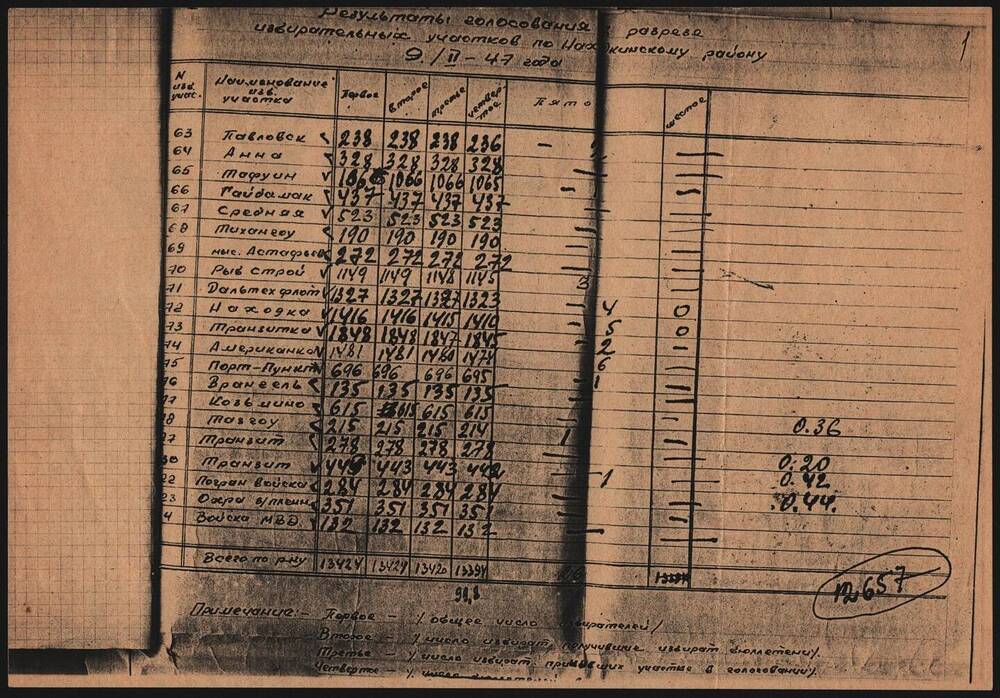 Результаты голосования в разрезе
избирательных участков по Находкинскому району
9/II-47 года
1
N изб. учас. Наименование изб. участка Первое Второе третье четвертое Пято шестое
63 Павловск 238 238 238 236 —
64 Анна 328 328 328 328
65 Тафуин 1066 1066 1065
66 Гайдамак 437 437 437 437
67 Средняя 523 523 523 523
68 Тихангоу 190 190 190 190
69 мыс. Астафьев 272 272 272 272
70 Рыб строй 1149 1149 1148 1145 3
71 Дальтехфлот 1327 1327 1327 1323 4
72 Находка 1416 1416 1415 1410 5 0
73 Транзитка 1848 1848 1847 1845 2 0
74 Американка 1481 1481 1480 1474 6
75 Порт-Пункт 696 696 696 695 1
76 Врангель 135 135 135 135
77 Козьмино 615 615 615 615
78 Тазгоу 215 215 215 214 0.36
Транзит 278 278 278 278
80 Транзит 443 443 442 1 0.20
22 Погран войска 284 284 284 284 0.42
23 Охра в/пленн 351 351 351 351 0.44.
4 Войска МВД 132 132 132 132
Всего по р-ну 13424 13424 13420 13394 13394
12657
Примечание:- Первое - /общее число избирателей/
Второе - /число избират. получивших избират. бюллетени/.
Третье - /число избират. принявших участие в голосовании/.
Четвертое - /число бюллетеней